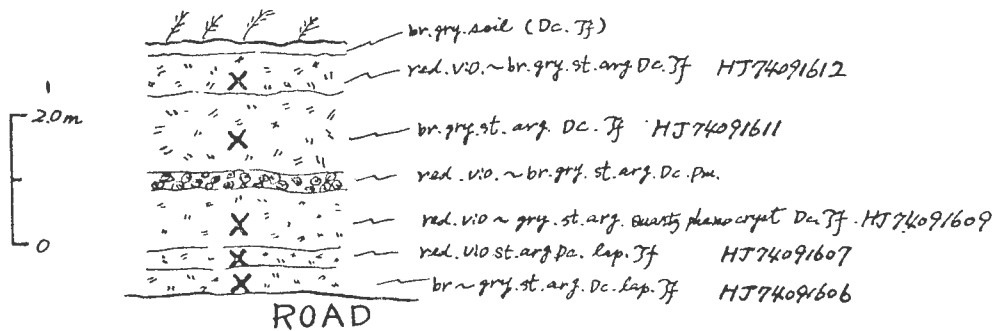 br.gry.soil (Dc.Tf)
red.vio.~br.gry.st.arg Dc.Tf HJ74091612
2.0m
br.gry.st.arg. Dc.Tf HJ74091611
red.vio.~br.gry.st.arg.Dc.Pm.
red.vio~gry.st.arg.quartz phenocryst Dc.Tf.HJ74091609
0
red.vio st.arg Dc.lap.Tf HJ74091607
br~gry.st.arg.Dc.lap.Tf HJ74091606
ROAD